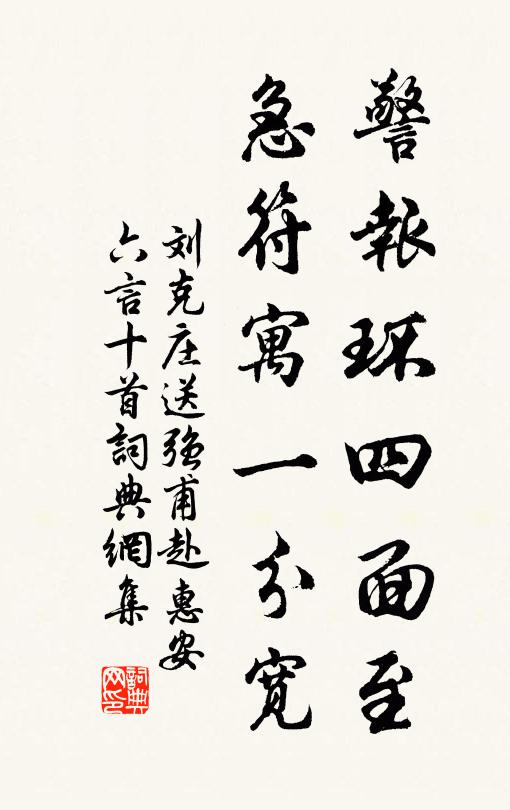 警報环四面至
急符寓一分寬
刘克庄送强甫赴惠安
六言十首詞典網集
詞典
网印